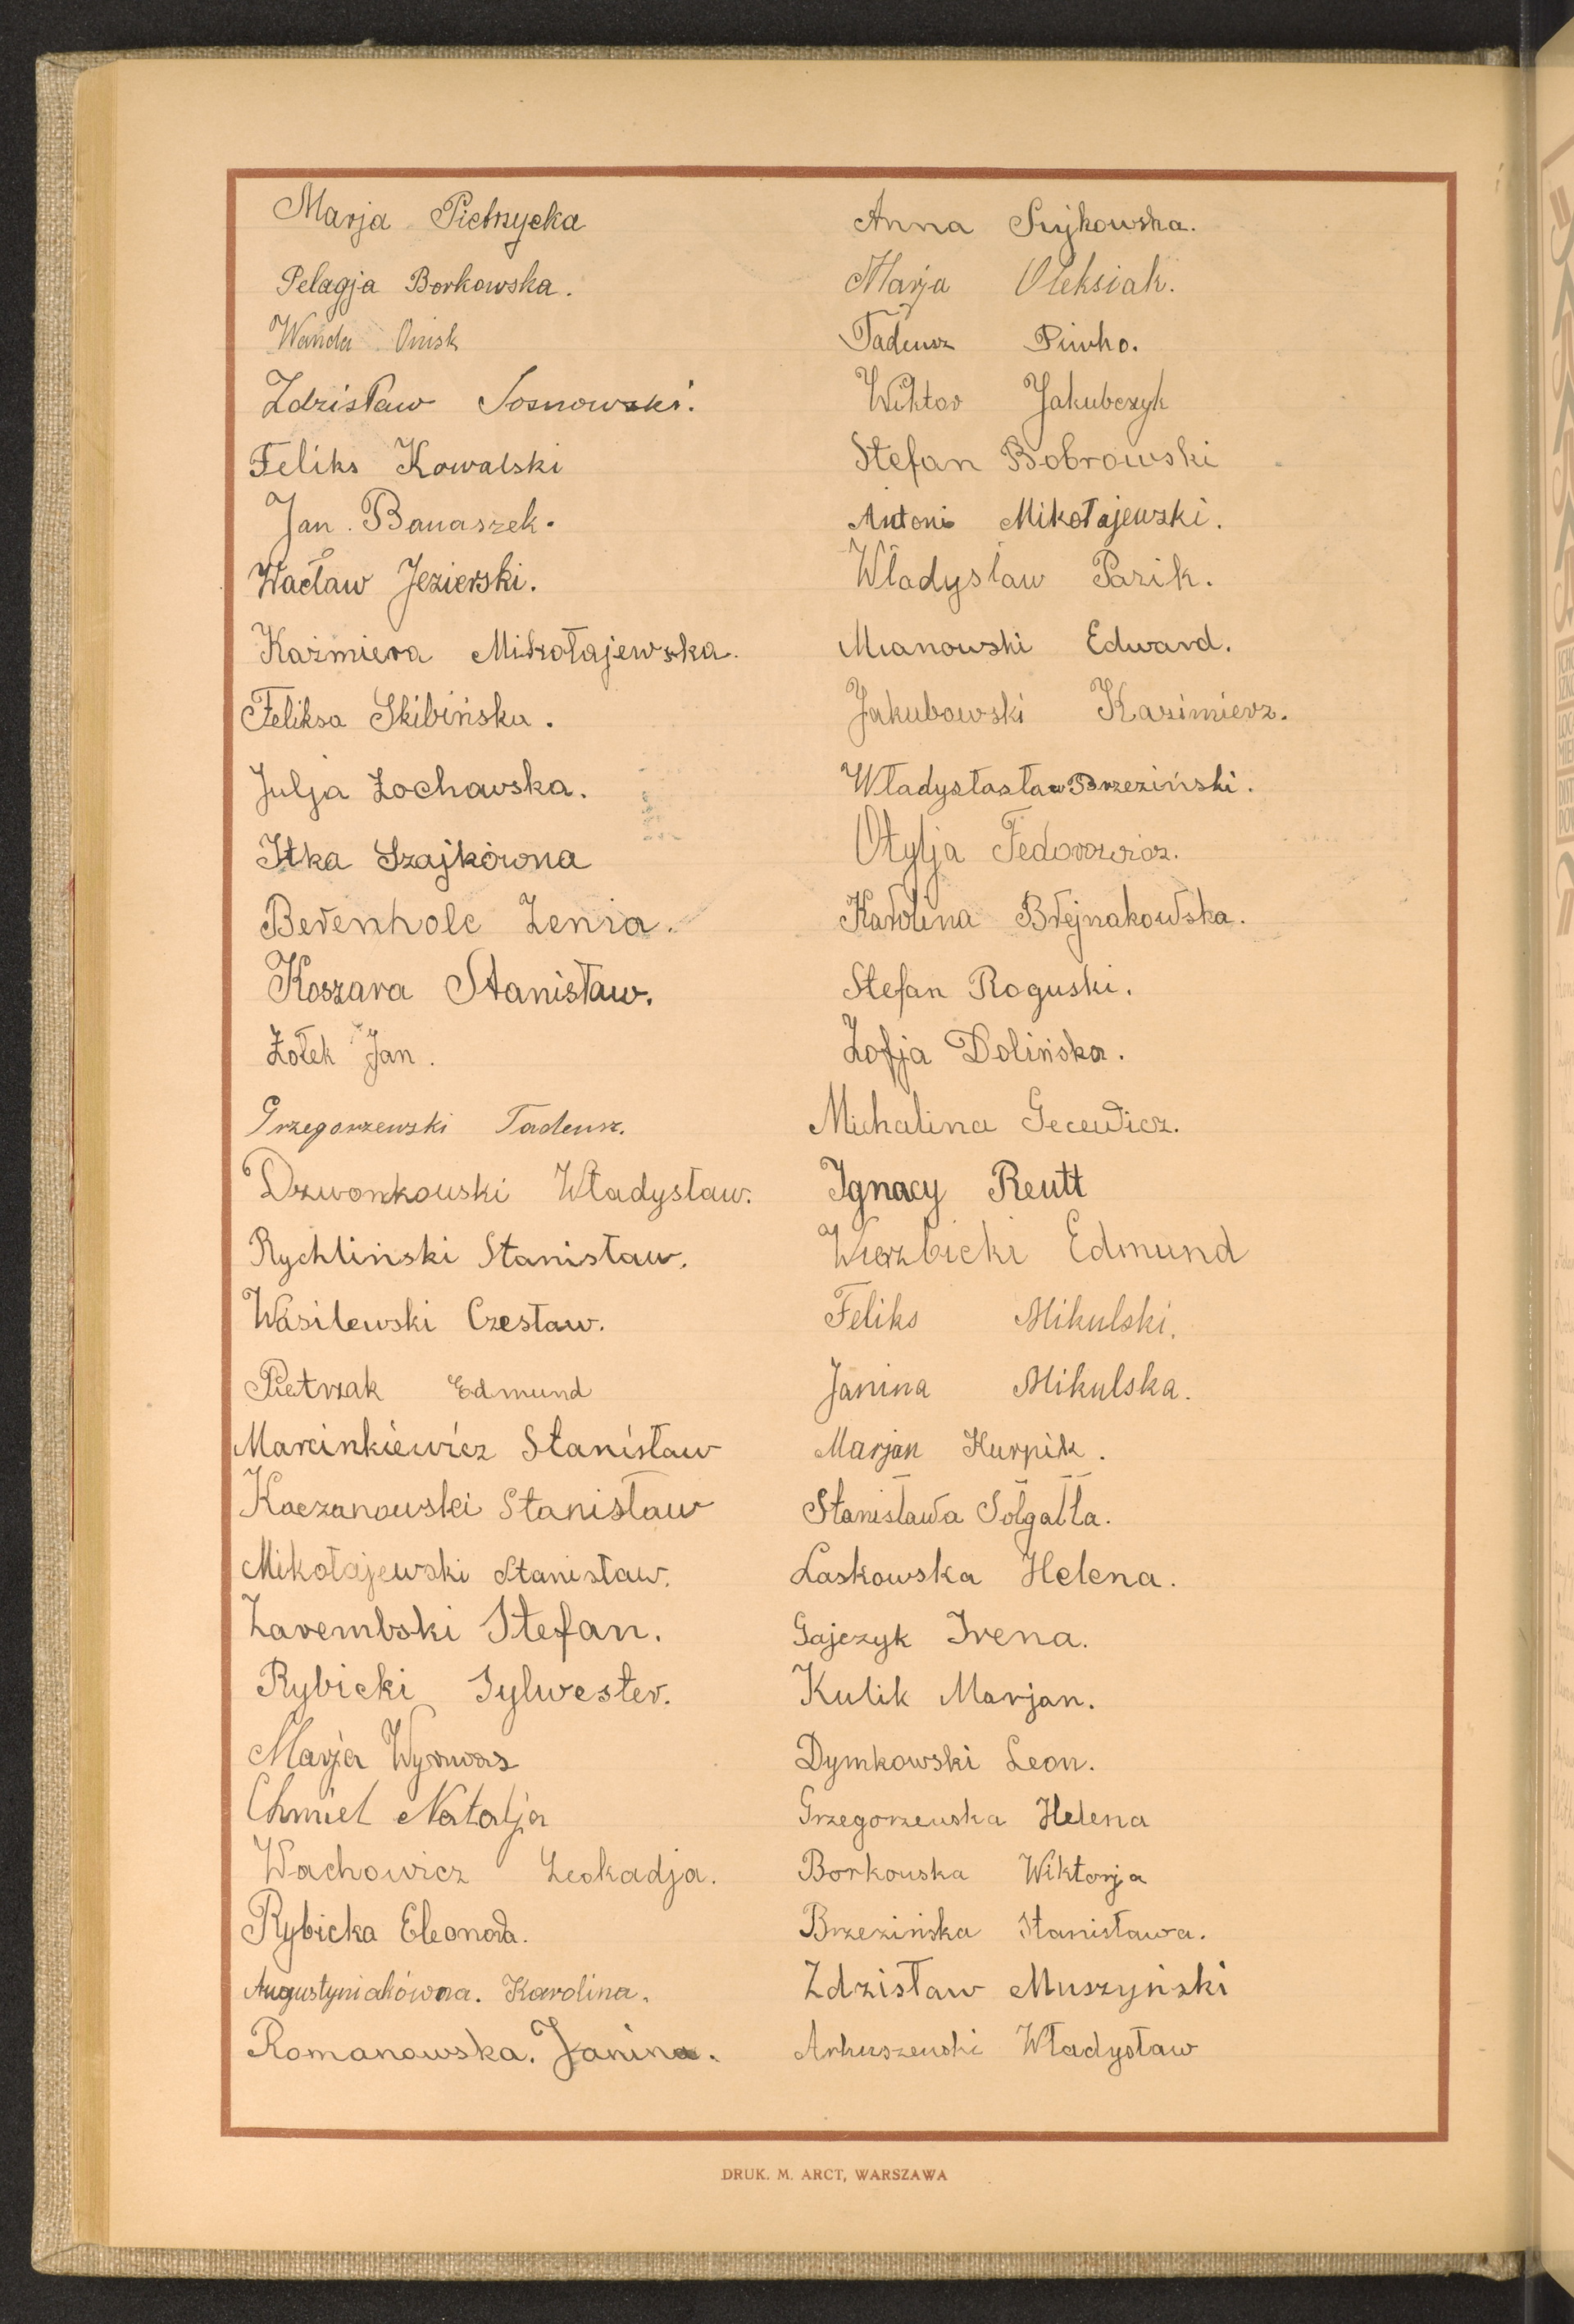 Marja Pietrzycka
Pelagja Borkowska.
Wanda
Zdzisław Sosnowski.
Feliks Kowalski
Jan. Banaszek.
Wacław Jezierski.
Kaźmiera Mikołajewska.
Feliksa Skibińska.
Julja Żochowska.
Itka Szajkówna
Berenholc Zenia.
Koszara Stanisław.
Żołek Jan.
Grzegorzewski Tadeusz.
Dzwonkowski Władysław.
Rychliński Stanisław.
Wasilewski Czesław.
Pietrzak Edmund
Marcinkiewicz Stanisław
Kaczanowski Stanisław
Mikołajewski Stanisław.
Zarembski Stefan.
Rybicki Sylwester.
Marja Wyrwas
Chmiel Natalja
Wachowicz Leokadja.
Rybicka Eleonora.
Augustyniakówna. Karolina.
Romanowska. Janina.
Anna
Marja Oleksiak.
Tadeusz Piwko.
Wiktor Jakubczyk
Stefan Bobrowski
Antoni Mikołajewski.
Władysław Pazik.
Mianowski Edward.
Jakubowski Kazimierz.
Władysłasław Brzeziński.
Otylja Fedorowicz.
Karolina Brejnakowska.
Stefan Roguski.
Zofja Dolińska.
Michalina Gecewicz.
Ignacy Reutt
Wierzbicki Edmund
Feliks Mikulski.
Janina Mikulska.
Marjan Kurpik.
Stanisława Sołgałła.
Laskowska Helena.
Gajczyk Irena.
Kulik Marjan.
Dymkowski Leon.
Grzegorzewska Helena
Borkowska Wiktorja
Brzezińska Stanisława.
Zdzisław Muszyński
Arkuszewski Władysław
DRUK. M. ARCT, WARSZAWA